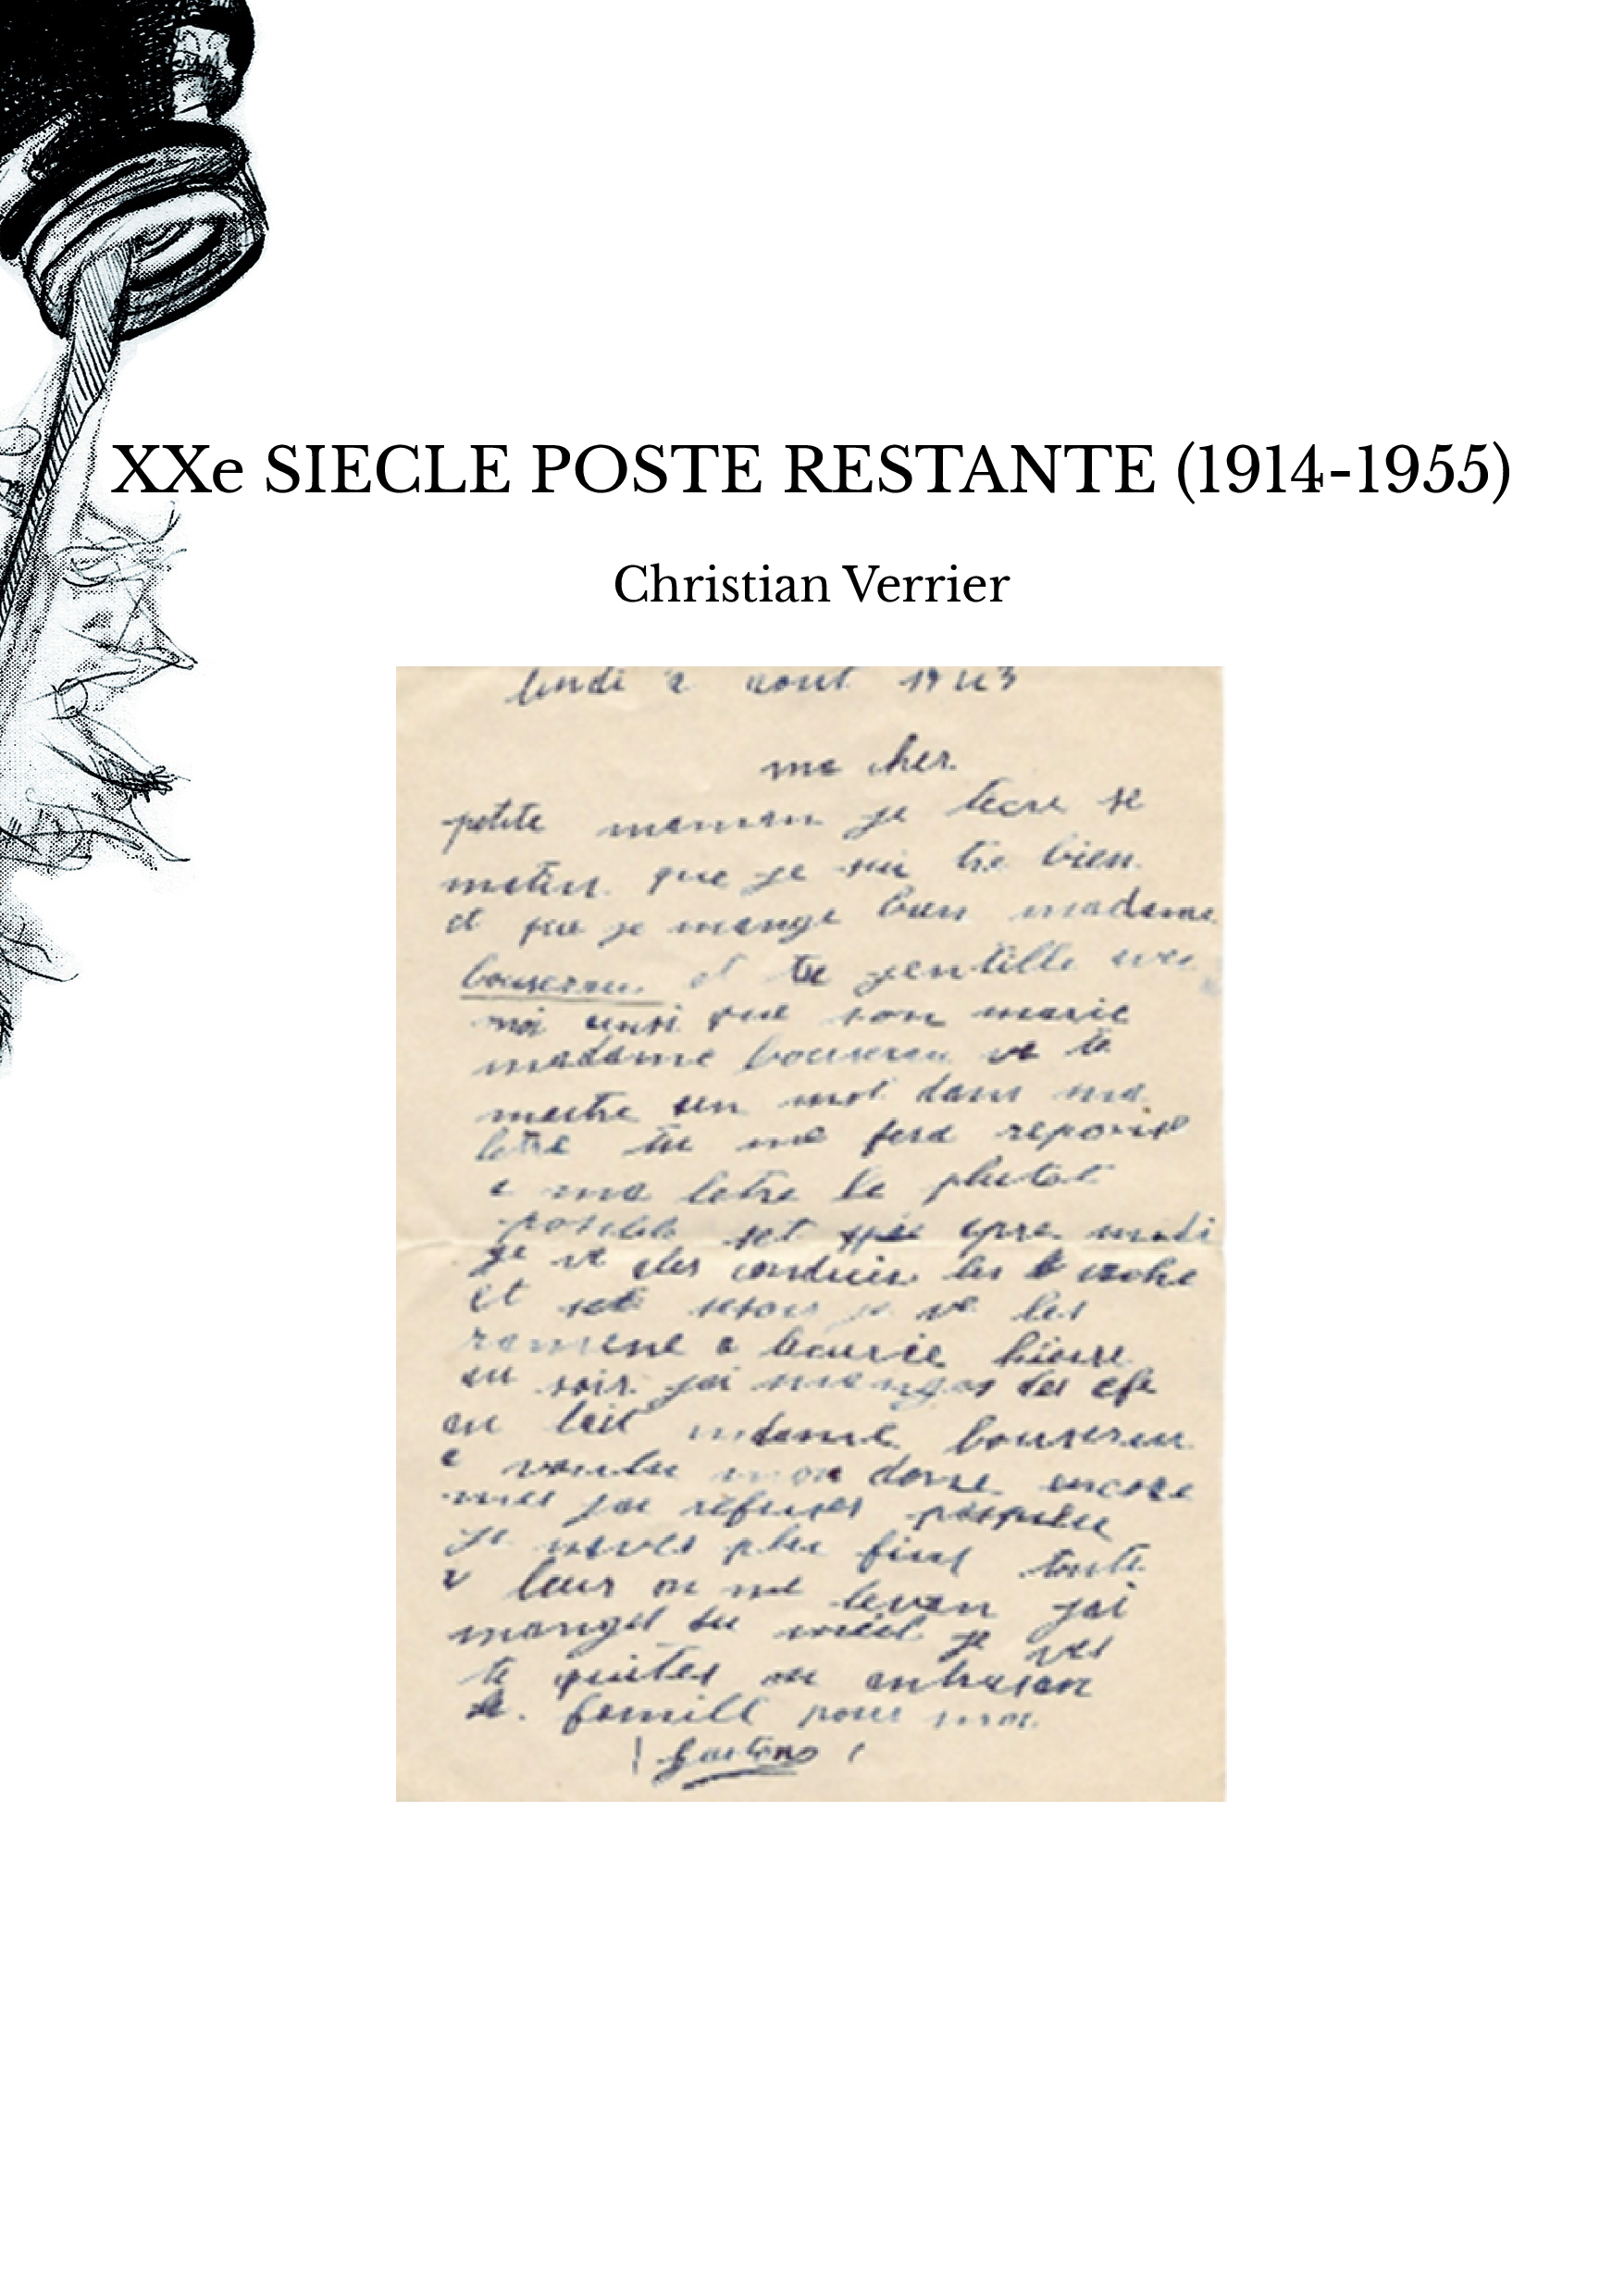 XXe SIECLE POSTE RESTANTE (1914-1955)
Christian Verrier
lundi 2 aout 1943
ma cher
petite maman je tecri se
matin que je sui tre bien
et que je mange bien madame
bouserau et tre gentille avec
moi ainsi que son marie
madame bouserau va te
maitre un mot dans ma
letre tu me fera reponse
a ma letre le plutot
posible set apre midi
je ve les conduire les vache
et je ve les
ramene a
au soir jai manger des
au lait madame bouserau
a voulu mon donre encore
mes jai refuser
je navet plus fin
a leur on me jai
manger du miel je ves
te quiter en
famille pour moi